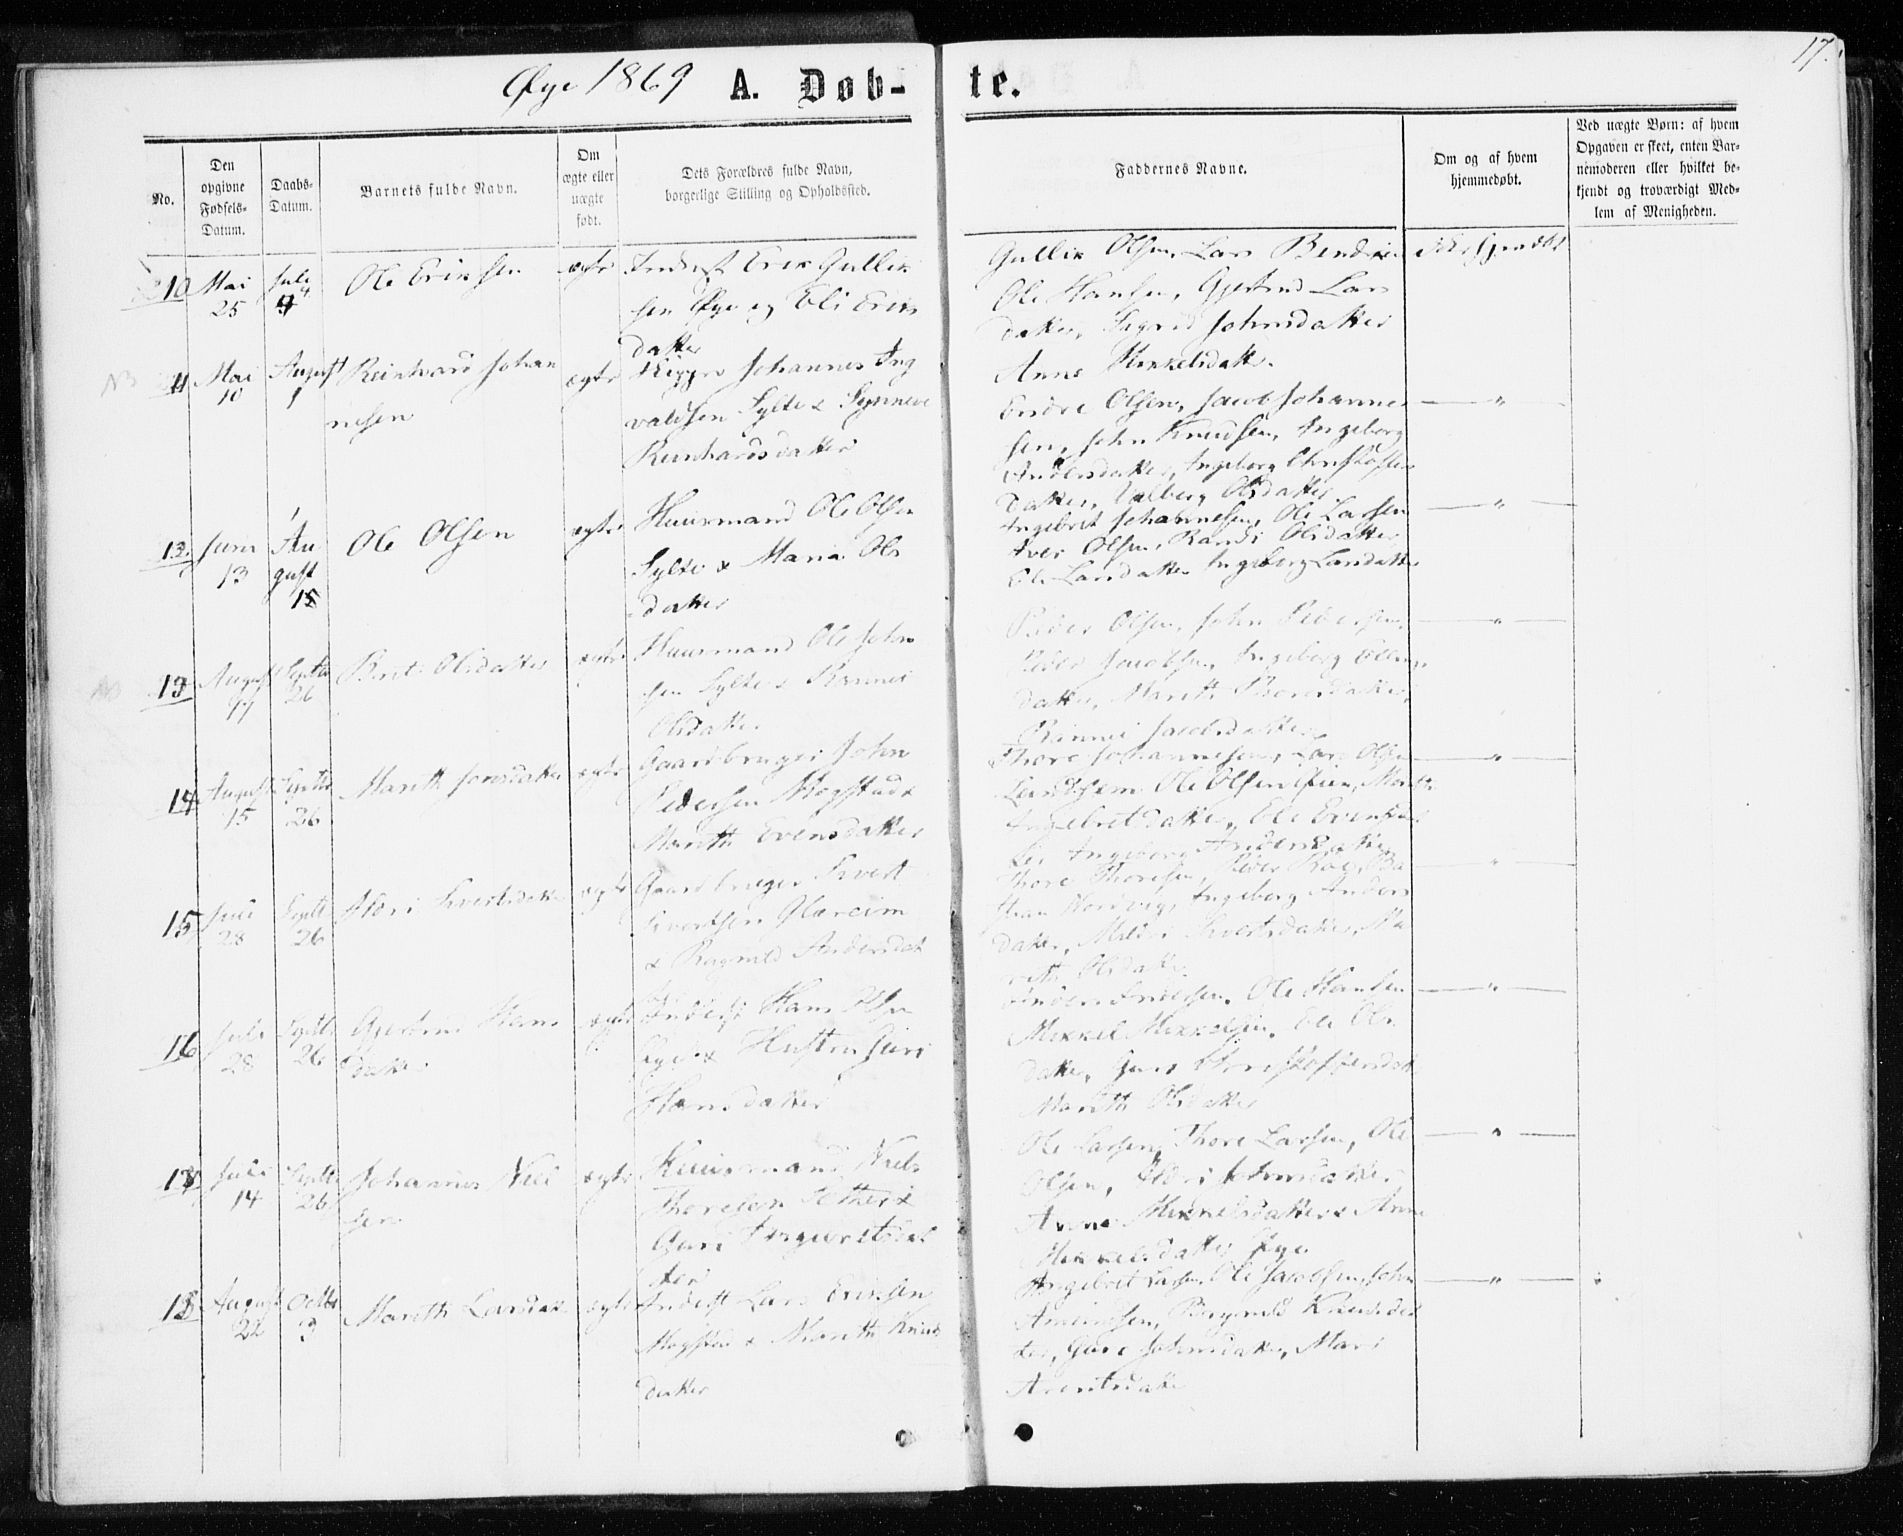 Øye 1869 A. Døb-te. 17.
No.
Den opgivne Fødsels-Datum.
Daabs-Datum.
Barnets fulde Navn.
Om ægte eller uægte født.
Dets Forældres fulde Navn,
borgerlige Stilling og Opholdssted.
Faddernes Navne.
Om og af hvem
hjemmedøbt.
Ved uægte Børn: af hvem
Opgaven er skeet, enten Bar-
nemoderen eller hvilket be-
kjendt og troværdigt Med-
lem af Menigheden.
10 Mai 25 Juli 4 Ole Eriksen ægte Inderst Erik Gullik
sen Øye og Eli Eriks
datter
Gullik Olsen, Lars Bendixen
Ole Hansen, Gjertrud Lars
datter, Sigrid Johnsdatter
Anne Mikkelsdatter
NB 11 Mai 10 August 1 Reinhard Johan
nesen
ægte Johannes Ing
valdsen Sylte & Synneve
Reinhardsdatter
Endre Olsen, Jacob Johannes
sen, John Knudsen, Ingeborg
Andersdatter, Ingeborg Christofers
datter, Valberg Olsdatter
— " —
12. Juni 13 Au
gust
15
Ole Olsen ægte Huusmand Ole Olsen
Sylte & Maria Ols
datter
Ingebret Johannesen, Ole Larsen
Iver Olsen, Randi Olsdatter
Eli Larsdatter Ingeborg Larsdatter
— " —
NB 13 August Septbr 26 Berit Olsdatter ægte Huusmand Ole John
sen Sylte & Rannei
Olsdatter
Peder Olsen, John Pedersen,
Peder Jacobsen, Ingeborg
datter, Marith
Rannei Jacobsdatter
— " —
14 August 15 Septbr 26 Marith Jonsdatter ægte Gaardbruger John
Pedersen Mogstad &
Marith Evensdatter
Thore Johannesen, Lars Olsen
Ole Olsen Øien, Marith
Ingebretsdatter, Eli Evensdat
ter Ingeborg Andersdatter
— " —
15 Juli 28 Septbr 26 Sivertsdatter ægte Gaardbruger Sivert
Sivertsen Glæreim
& Ragnild Andersdat
ter
Thore Thoresen, Peder
Nordvig, Ingeborg Anders
datter, Sivertsdatter, Ma
rith Olsdatter
— " —
16 Juli 28 Septbr 26 Gjertrud Hans
datter
ægte Inderst Hans Olsen
Øye & Hustru Guri
Hansdatter
Anders Andersen, Ole Hansen
Mikkel Mikkelsen, Eli Ols
datter, Guri Christofersdat
Marith Olsdatter
— " —
17 Juli 14 Septbr 26 Johannes Niel
sen
ægte Huusmand Niels
Thoresen Sæther &
Guri Ingebretsdat
ter
Ole Larsen, Thore Larsen, Ole
Olsen, Johnsdatter,
Anne Mikkelsdatter & Anne
Mikkelsdatter Øye
— " —
18 August 22 Octbr 3 Marith Larsdatter ægte Inderst Lars Eriksen
Mogstad & Marith Knuds
datter
Ingebret Larsen, Ole Jacobsen, John
Amundsen, Ragnild Knudsdat
ter, Guri Johnsdatter, Mari
Arentsdatter
— " —